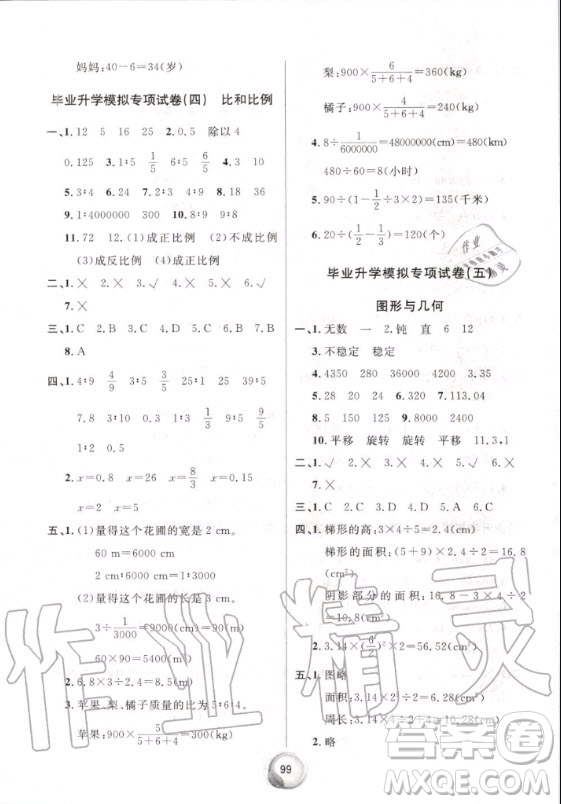 妈妈:40-6=34(岁)
毕业升学模拟专项试卷(四) 比和比例
一、1. 12 5 16 25 2. 0.5 除以 4
0.125 3. 1∶5 1/5 6∶5 6/5 4. >
5. 3∶4 6. 24 7. 2∶9 8. 18 36
9. 1∶4000000 10. 6∶9=8∶12
11. 72 12. (1)成正比例 (2)不成比例
(3)成反比例 (4)成正比例
二、1. × 2. × 3. × 4. ✓ 5. × 6. ✓
三、1. C 2. C 3. A 4. D 5. B 6. B 7. B
8. A
四、1. 4∶9 4/9 32∶25 1.28 25 39∶5
7.8 3∶2 1.5 1∶3 1/3 9∶5 9/5
1∶4 0.25
2. x=0.8 x=264 x=8/3 x=0.15
x=4 x=0.4
五、1. (1)量得这个花圃的宽是 2 cm。
60 m=6000 cm
2 cm∶6000 cm=1∶3000
(2)量得这个花圃的长是 3 cm。
3÷1/3000=9000(cm)=90(m)
60×90=5400(m²)
2. 6×3.2÷2.4=8(m)
3. 苹果、梨、橘子质量的比为 5∶6∶4。
苹果:900×5/(5+6+4)=300(kg)
梨:900×6/(5+6+4)=360(kg)
橘子:900×4/(5+6+4)=240(kg)
4. 8÷1/6000000=48000000(cm)=480(km)
480÷60=8(小时)
5. 90÷(1-1/2÷3×2)=135(千米)
6. 20÷(1/2-1/3)=120(个)
毕业升学模拟专项试卷(五)
图形与几何
一、1. 无数 一 2. 钝 直 6 12
3. 不稳定 稳定
4. 4350 280 4350000 4350
5. 28 20 24 6. 2000 7. 113.04
8. 5 150 125 9. 8000 2400
10. 平移 旋转 旋转 平移 11. 3,1
二、1. ✓ 2. ✓ 3. × 4. × 5. ✓ 6. ×
7. ×
三、1. C 2. C 3. D 4. C 5. D 6. A
四、1. 梯形的高:3×4÷5=2.4(cm)
梯形的面积:(5+9)×2.4÷2=16.8
(cm²)
阴影部分的面积:16.8-3×4÷2
=10.8(cm²)
2. 3.14×(6/2)²×2=56.52(cm²)
五、1. 图略
面积:3.14×2²÷2=6.28(cm²)
周长:3.14×2+2×2=10.28(cm)
2. 略
99
作业精灵
答案圈